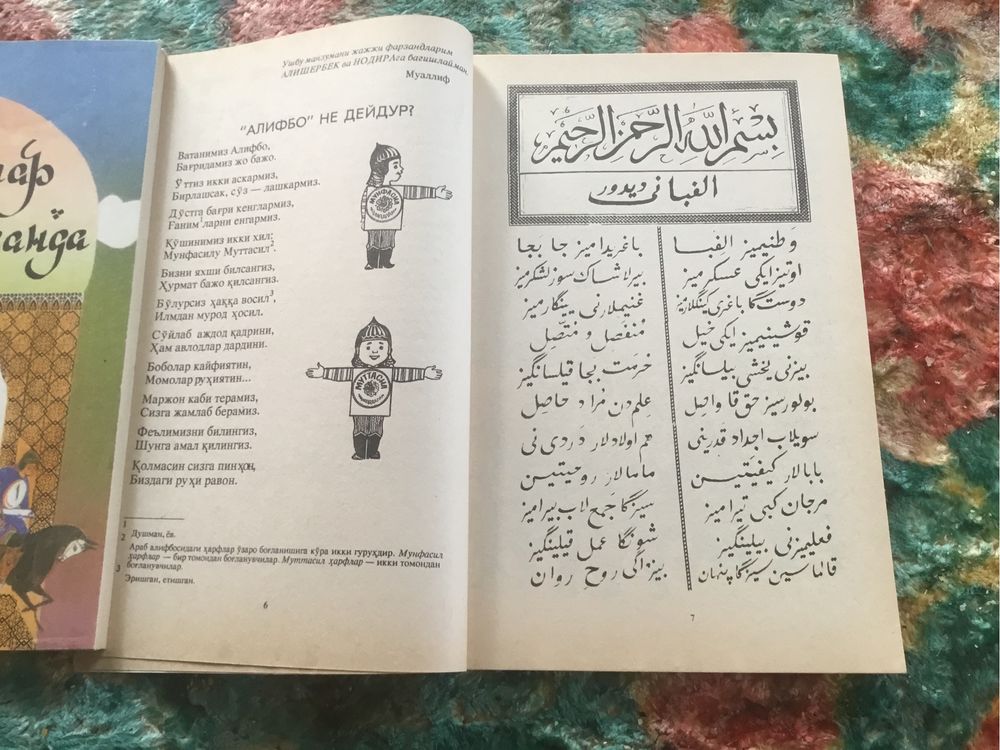 Ушбу манзумани жажжи фарзандларим
АЛИШЕРБЕК ва НОДИРАга бағишлайман.
Муаллиф
"АЛИФБО" НЕ ДЕЙДУР?
Ватанимиз Алифбо,
Бағридамиз жо бажо.
Ўттиз икки аскармиз,
Бирлашсак, сўз — лашкармиз.
Дўстга бағри кенглармиз,
Ғаним¹ларни енгармиз.
Қўшинимиз икки хил:
Мунфасилу Муттасил².
Бизни яхши билсангиз,
Ҳурмат бажо қилсангиз.
Бўлурсиз ҳаққа восил³,
Илмдан мурод ҳосил.
Сўйлаб аждод қадрини,
Ҳам авлодлар дардини.
Боболар кайфиятин,
Момолар руҳиятин...
Маржон каби терамиз,
Сизга жамлаб берамиз.
Феълимизни билингиз,
Шунга амал қилингиз.
Қолмасин сизга пинҳон,
Биздаги руҳи равон.
МУНФАСИЛ
МУТТАСИЛ
1 Душман, ёв.
2 Араб алифбосидаги ҳарфлар ўзаро боғланишига кўра икки гуруҳдир. Мунфасил
ҳарфлар — бир томондан боғланувчилар. Муттасил ҳарфлар — икки томондан
боғланувчилар.
3 Эришган, етишган.
6
بِسْمِ اللهِ الرَّحْمٰنِ الرَّحِيْمِ
الفبا نى ديدور
وَطنيميز الفبا باغريداميز جا بجا
اوتيز ايكى عسكرميز بيرلاشساك سوز لشكرميز
دوستگا باغرى كينگلارميز غنيملارنى يينگارميز
قوشينيميز ايكى خيل منفصل و متصل
بيزنى يخشى بيلسانگيز حرمت بجا قيلسانگيز
بولورسيز حق قا واصل علم دن مراد حاصل
سويلاب اجداد قدرينى هم اولادلار دردى نى
بابالار كيفيتين مامالار روحيتين
مرجان كبى تيراميز سيزگا جمع لاب بيراميز
فعليميزنى بيلينگيز شونگا عمل قيلينگيز
قالماسين سيزگا پنهان بيزداگى روح روان
7